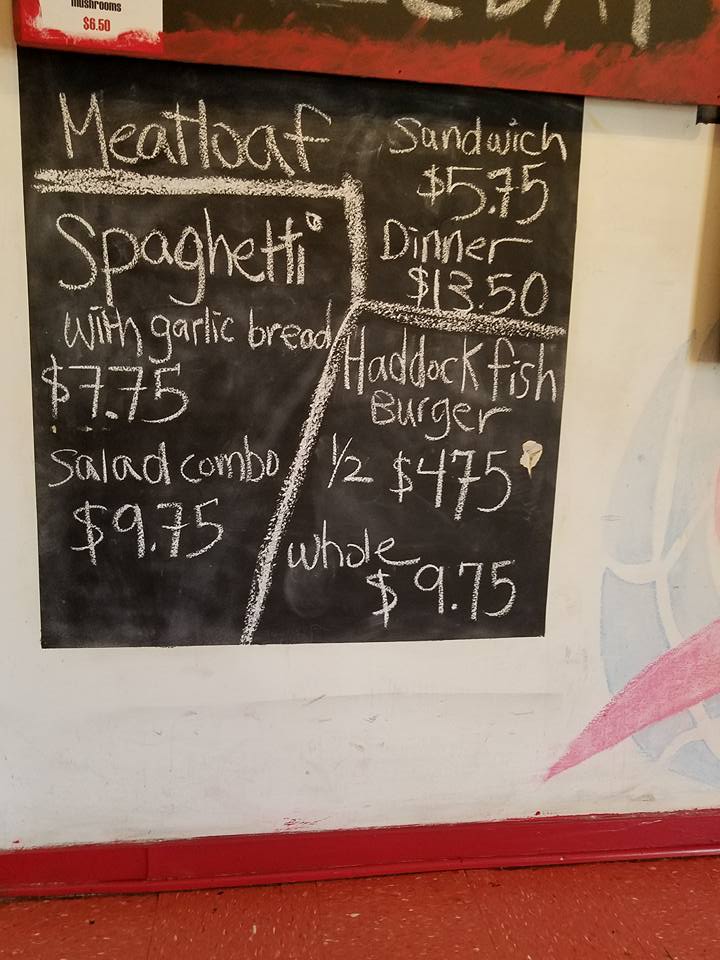 mushrooms
$6.50
Meatloaf
Sandwich
$5.75
Dinner
$13.50
Spaghetti
with garlic bread
$7.75
Salad combo
$9.75
Haddock fish
Burger
1/2 $4.75
whole
$9.75